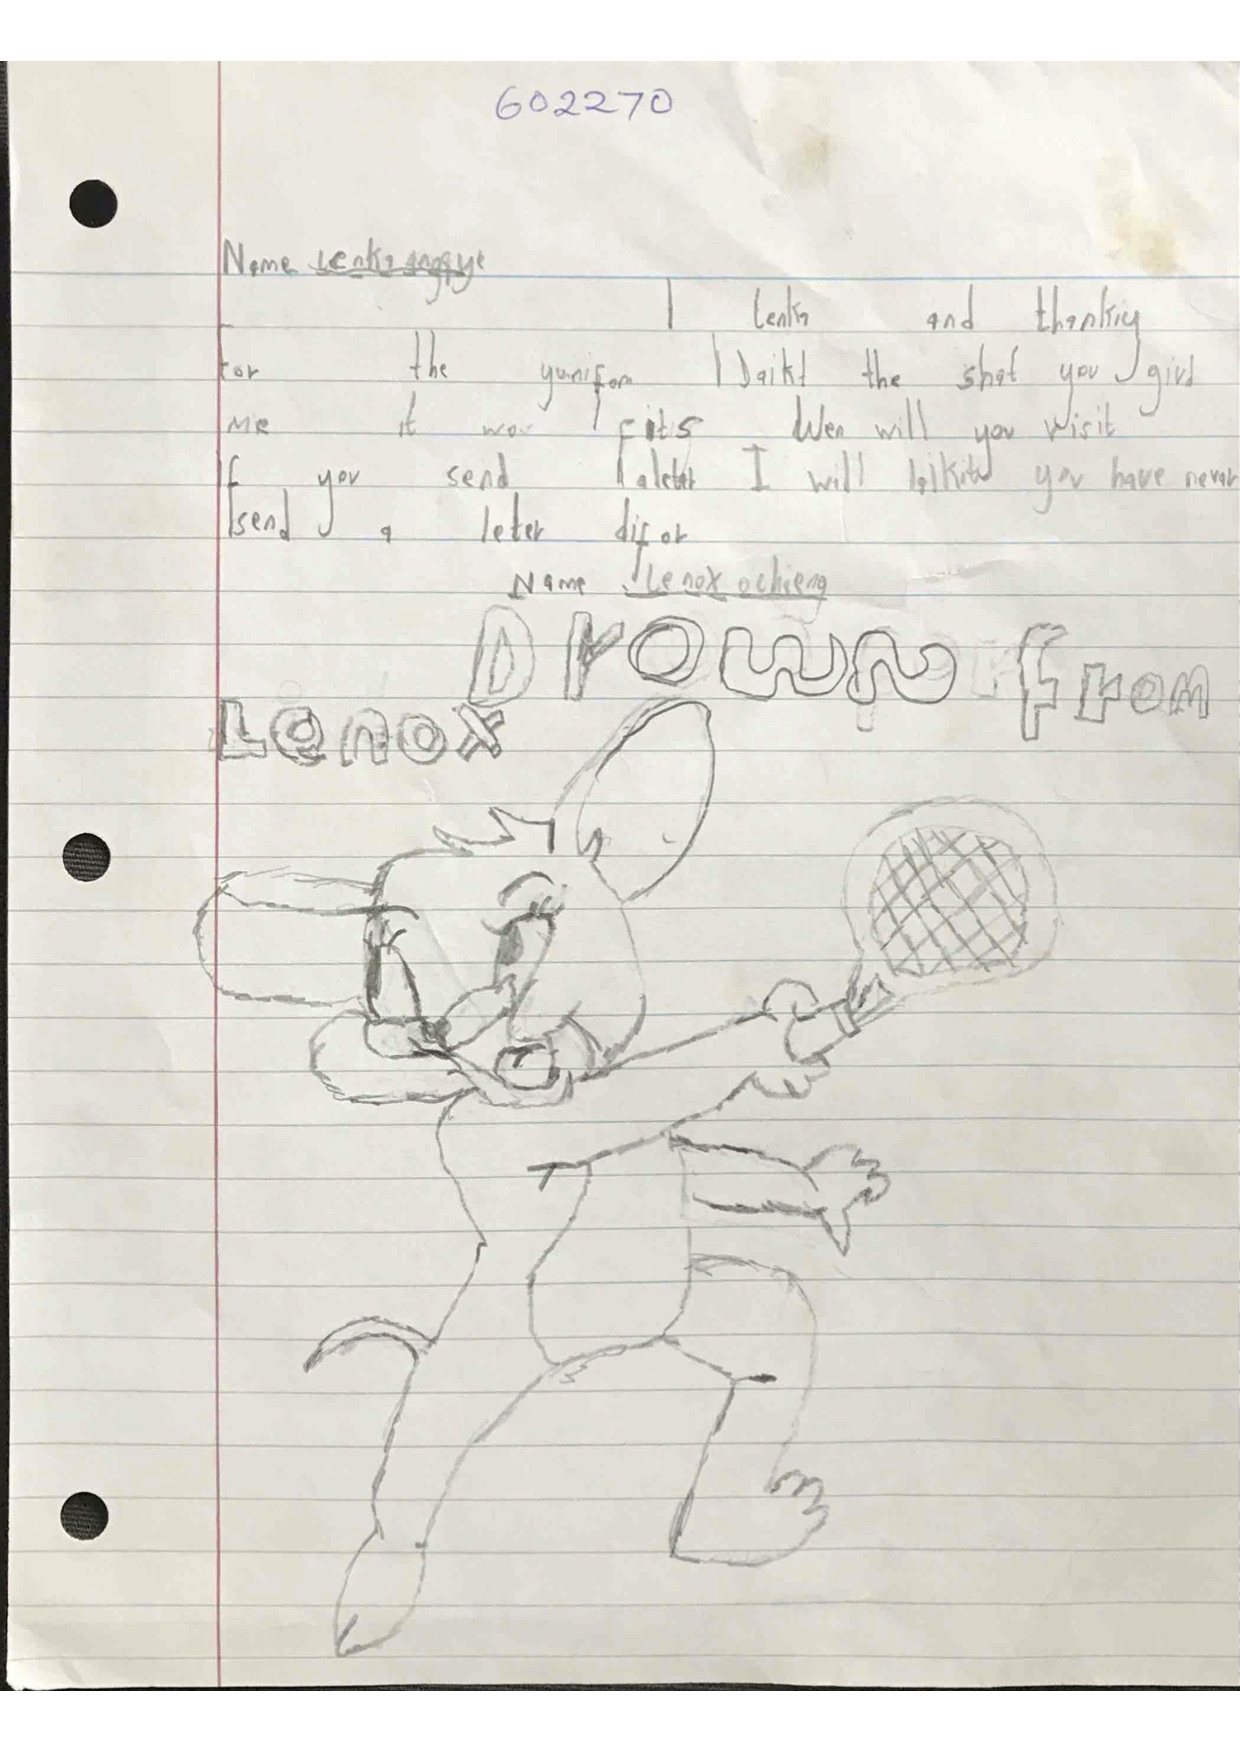 602270
Name
I lenkn and thankiy
for the yunifom I laikt the shat you givd
me it wos fits Wen will you visit
If you send aleter I will laikit you have never
send a leter difor
Name Lenox ochieng
Drown From
Lenox